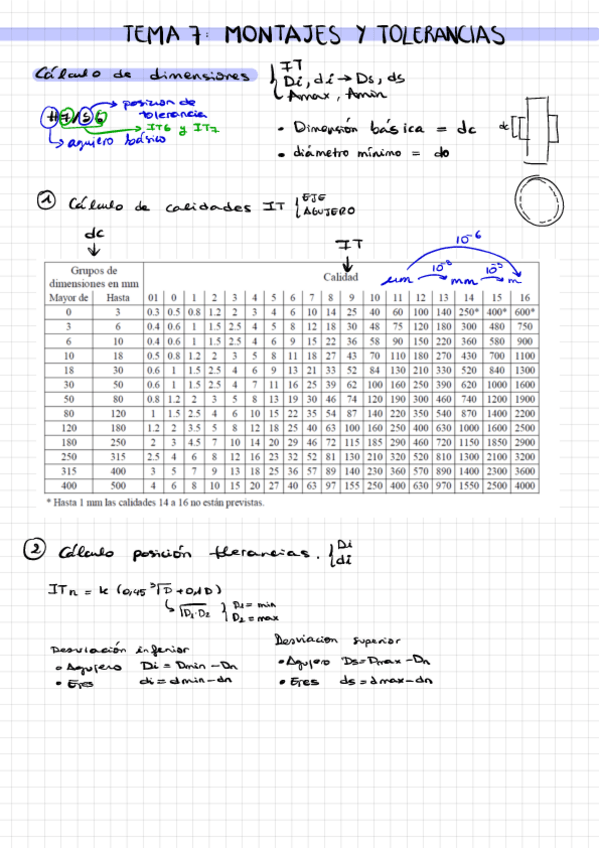 TEMA 7: MONTAJES Y TOLERANCIAS
Cálculo de dimensiones
IT
Di, di → Ds, ds
Amax, Amin
H7/s6
posicion de
tolerancia
IT6 y IT7
agujero básico
• Dimensión básica = dc
• diámetro mínimo = do
dc
① Cálculo de calidades IT
EJE
AGUJERO
dc
IT
10⁻⁶
µm 10⁻³ mm 10⁻³ m
Grupos de dimensiones en mm Calidad
Mayor de Hasta 01 0 1 2 3 4 5 6 7 8 9 10 11 12 13 14 15 16
0 3 0.3 0.5 0.8 1.2 2 3 4 6 10 14 25 40 60 100 140 250* 400* 600*
3 6 0.4 0.6 1 1.5 2.5 4 5 8 12 18 30 48 75 120 180 300 480 750
6 10 0.4 0.6 1 1.5 2.5 4 6 9 15 22 36 58 90 150 220 360 580 900
10 18 0.5 0.8 1.2 2 3 5 8 11 18 27 43 70 110 180 270 430 700 1100
18 30 0.6 1 1.5 2.5 4 6 9 13 21 33 52 84 130 210 330 520 840 1300
30 50 0.6 1 1.5 2.5 4 7 11 16 25 39 62 100 160 250 390 620 1000 1600
50 80 0.8 1.2 2 3 5 8 13 19 30 46 74 120 190 300 460 740 1200 1900
80 120 1 1.5 2.5 4 6 10 15 22 35 54 87 140 220 350 540 870 1400 2200
120 180 1.2 2 3.5 5 8 12 18 25 40 63 100 160 250 400 630 1000 1600 2500
180 250 2 3 4.5 7 10 14 20 29 46 72 115 185 290 460 720 1150 1850 2900
250 315 2.5 4 6 8 12 16 23 32 52 81 130 210 320 520 810 1300 2100 3200
315 400 3 5 7 9 13 18 25 36 57 89 140 230 360 570 890 1400 2300 3600
400 500 4 6 8 10 15 20 27 40 63 97 155 250 400 630 970 1550 2500 4000
* Hasta 1 mm las calidades 14 a 16 no están previstas.
② Cálculo posición tlerancias.
Di
di
ITn = k (0,45 ³√D + 0,1D)
√D₁·D₂
D₁ = min
D₂ = max
Desviación inferior
• Agujero Di = Dmin − Dn
• Ejes di = dmin − dn
Desviacion superior
• Agujero Ds = Dmax − Dn
• Ejes ds = dmax − dn